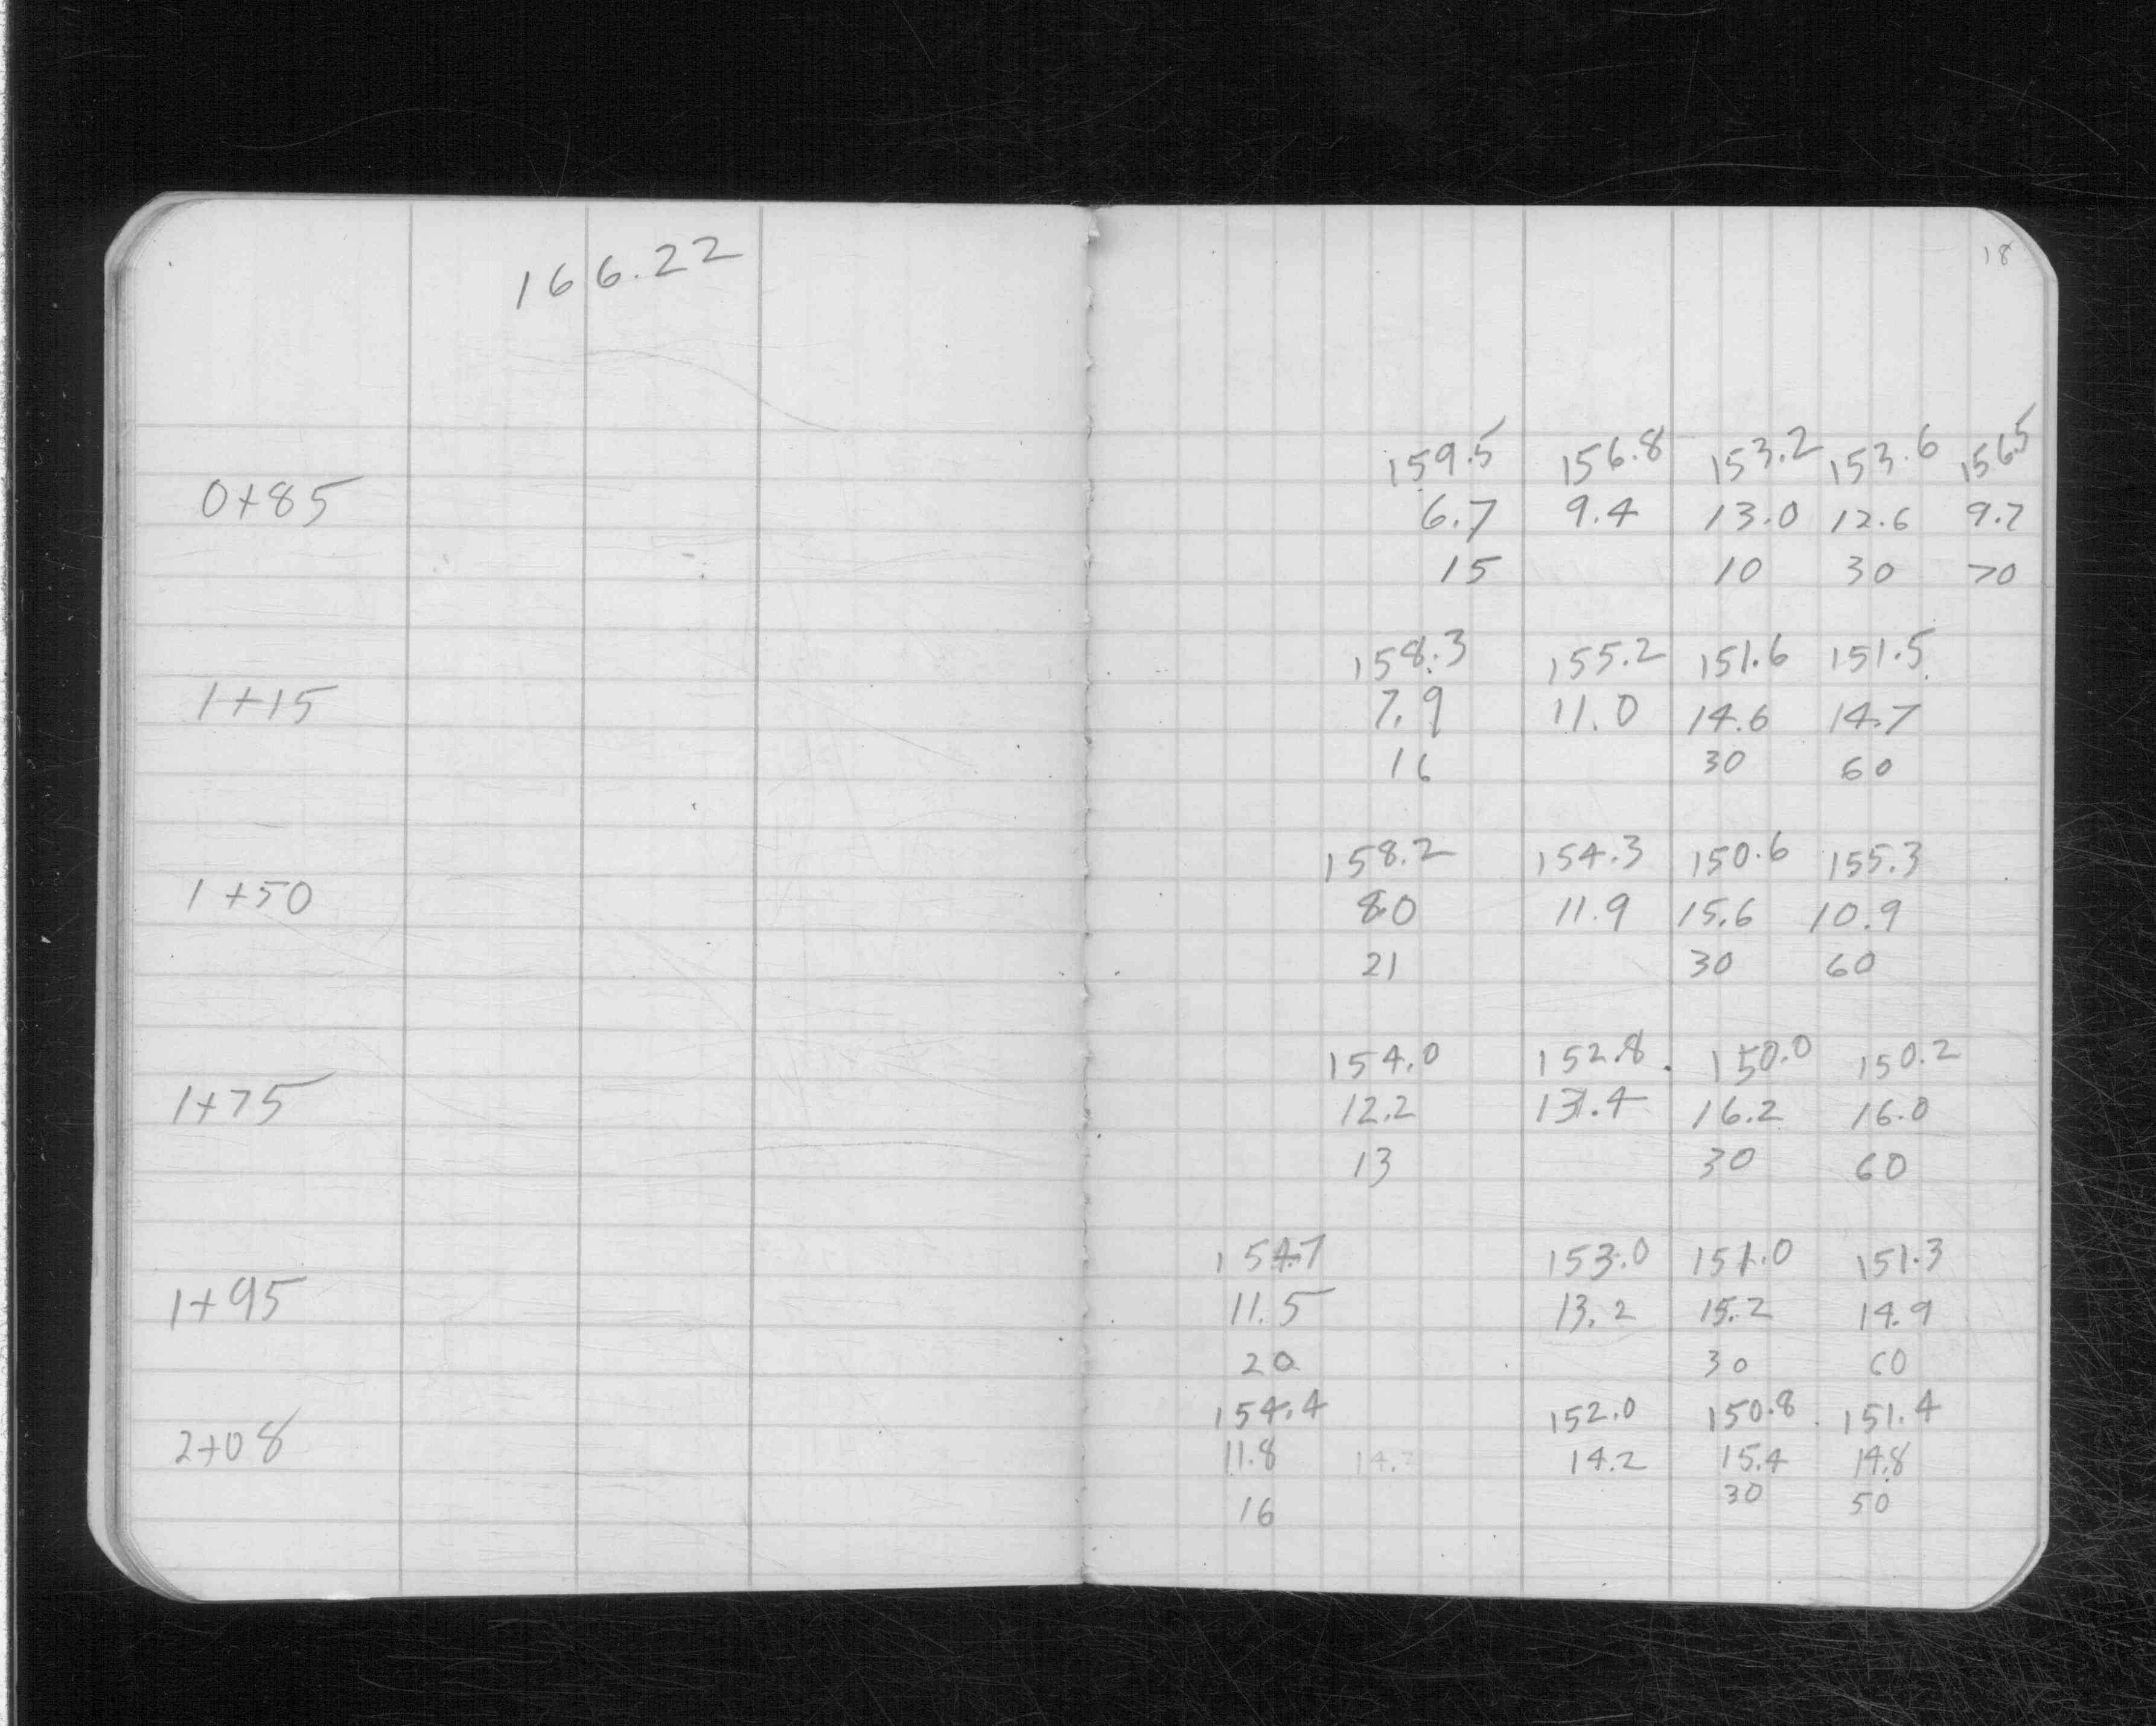 166.22
18
159.5 156.8 153.2 153.6 156.5
0+85 6.7 9.4 13.0 12.6 9.7
15 10 30 70
158.3 155.2 151.6 151.5
1+15 7.9 11.0 14.6 14.7
16 30 60
158.2 154.3 150.6 155.3
1+50 8.0 11.9 15.6 10.9
21 30 60
154.0 152.8 150.0 150.2
1+75 12.2 13.4 16.2 16.0
13 30 60
154.7 153.0 151.0 151.3
1+95 11.5 13.2 15.2 14.9
20 30 60
154.4 152.0 150.8 151.4
2+08 11.8 14.2 14.2 15.4 14.8
16 30 50